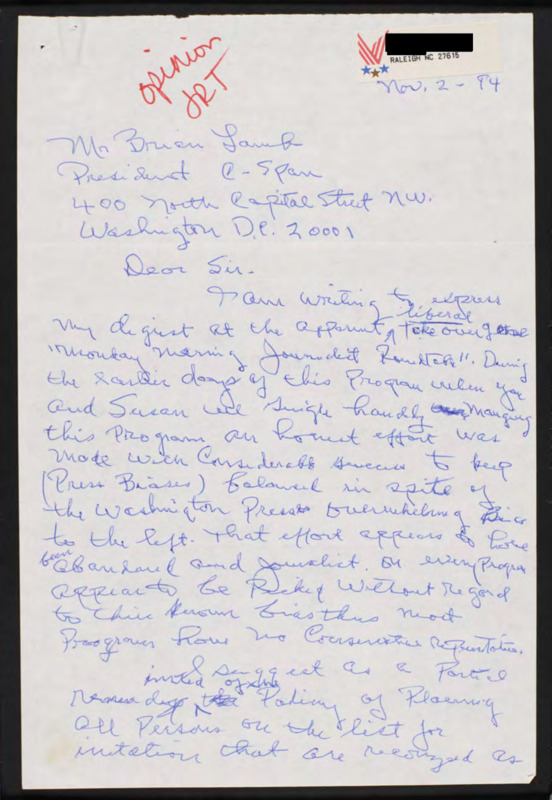 opinion
JRT
RALEIGH NC 27615
Nov. 2 - 94
Mr Brian Lamb
President C-Span
400 North Capital Street N.W.
Washington D.C. 20001
Dear Sir.
I am writing to express
my digust at the apparent liberal take over of the
"Monday Morning Journalist Roundtable". During
the earlier days of this Program when you
and Susan were single handly manging
this Program an honest effort was
made with Considerable success to keep
(Press Biases) balanced in spite of
the Washington Press overwhelming
to the left. That effort appears to have
been abandoned and journalist on every program
appear to be Picked Without regard
to their known bias thus most
Programs have no Conservative
I suggest as a Partial
instead of the
Policy of Placeing
all Persons on the list for
that are recongized as